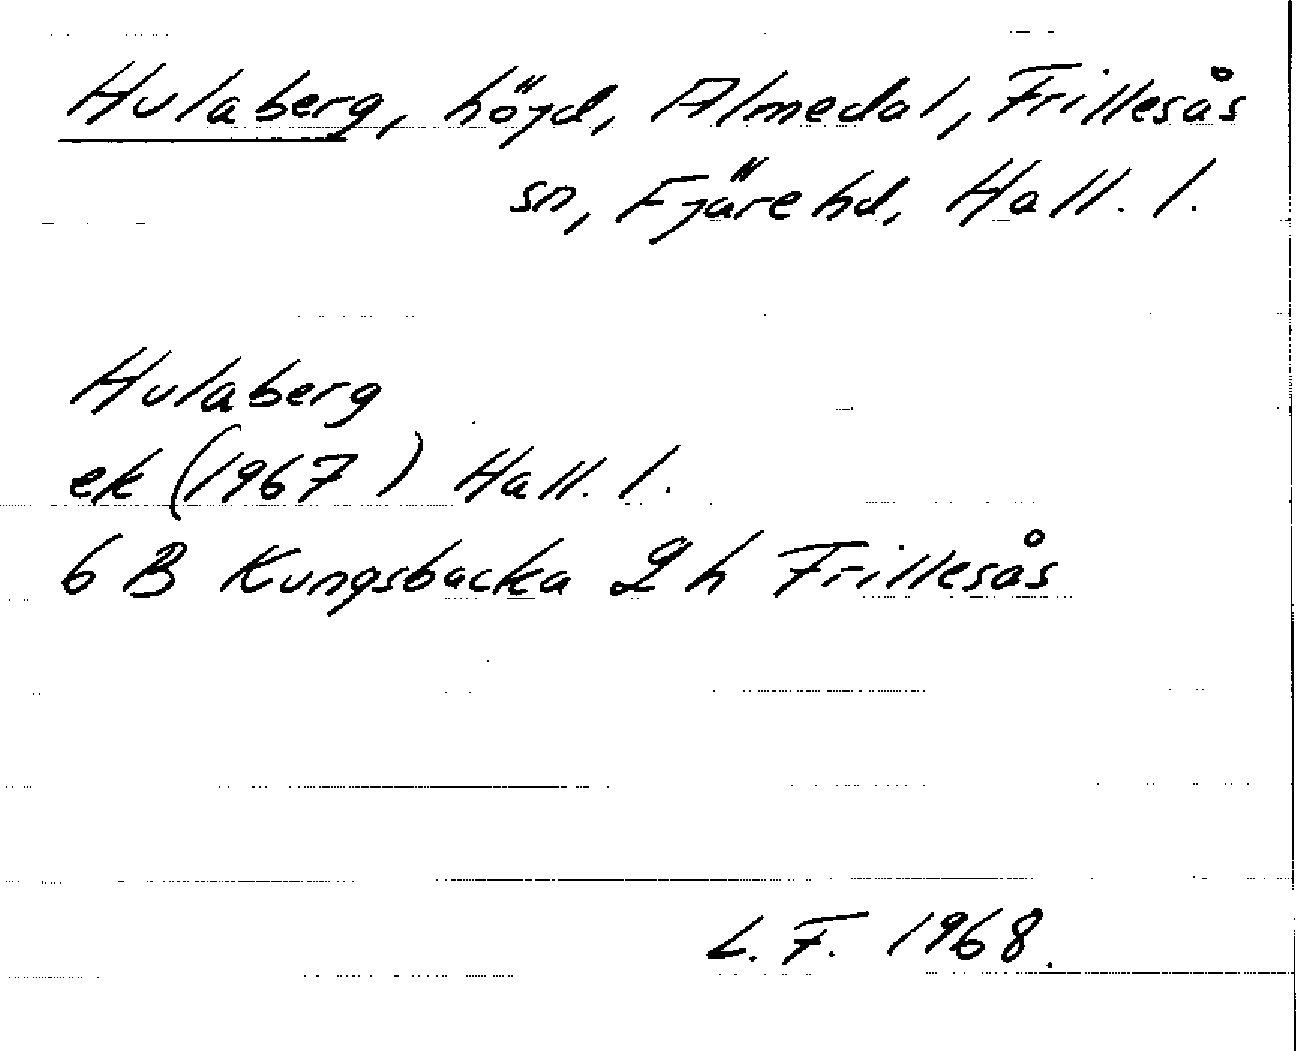 Hulaberg, höjd, Almedal, Frillesås
sn, Fjäre hd, Hall. l.
Hulaberg
ek (1967) Hall. l.
6 B Kungsbacka 2 h Frillesås
L. F. 1968.